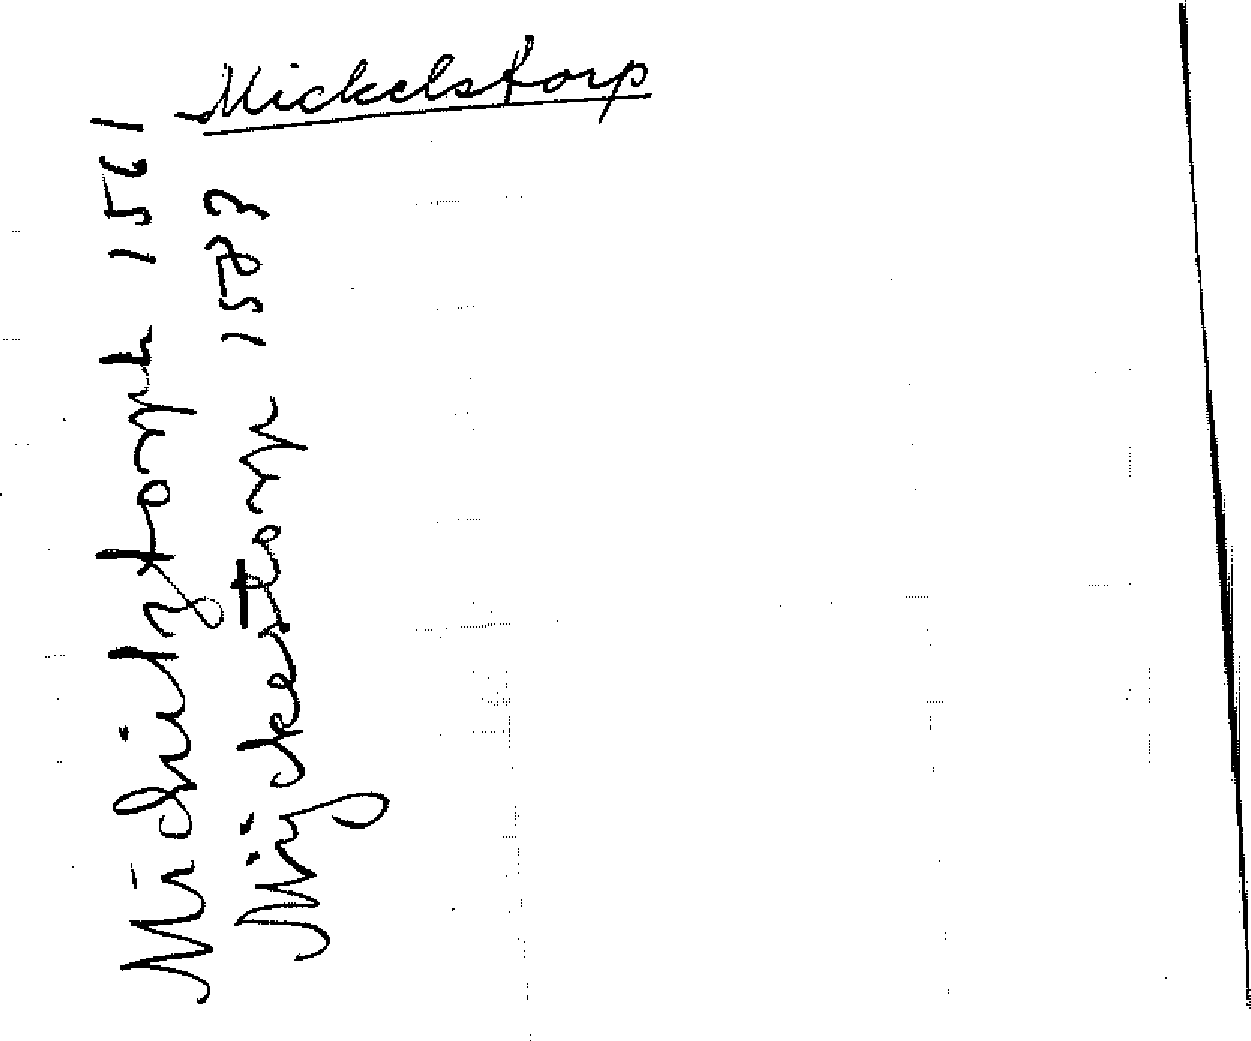 Mickelstorp
Michilztorph 1561
Mijckestorp 1583